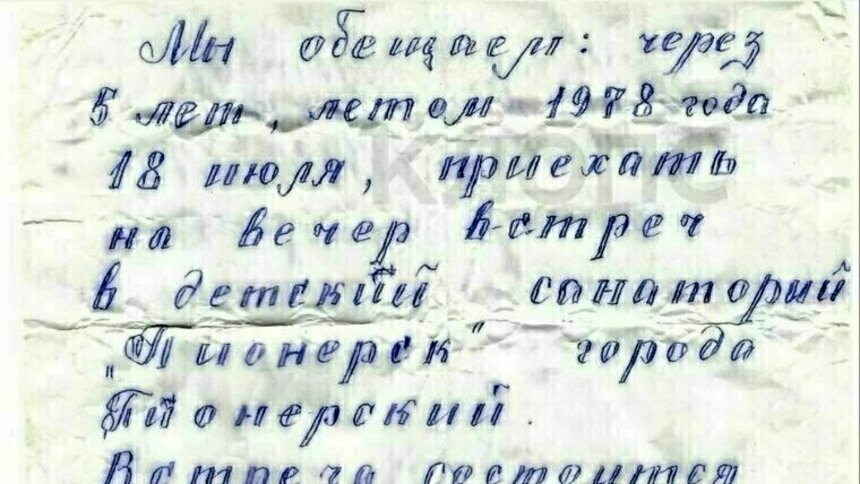 Мы обещаем: через
5 лет, летом 1978 года
18 июля, приехать
на вечер встреч
в детский санаторий
„Пионерск" города
Пионерский.
Встреча состоится
КЛОПС